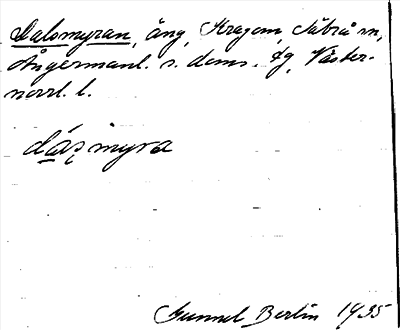 Dalsmyran, äng, Kragom, Säbrå sn,
Ångermanl. s. doms. dg, Väster-
norrl. l.
dáʂmyra
Gunnel Berlin 1935